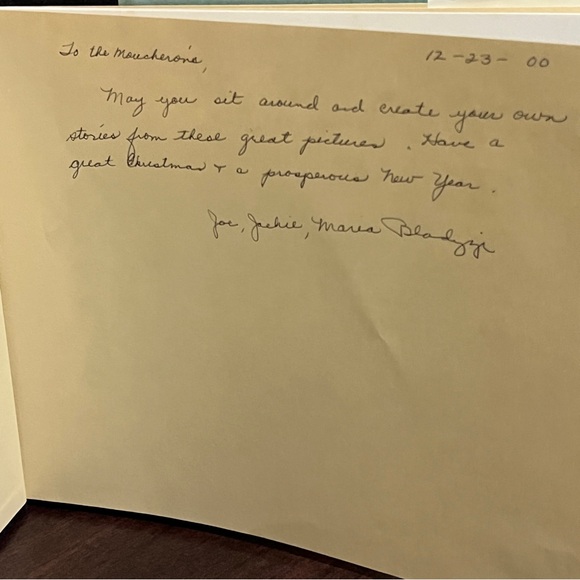 To the Moucheron's,
12-23-00
May you sit around and create your own
stories from these great pictures. Have a
great Christmas + a prosperous New Year.
Joe, Jackie, Maria